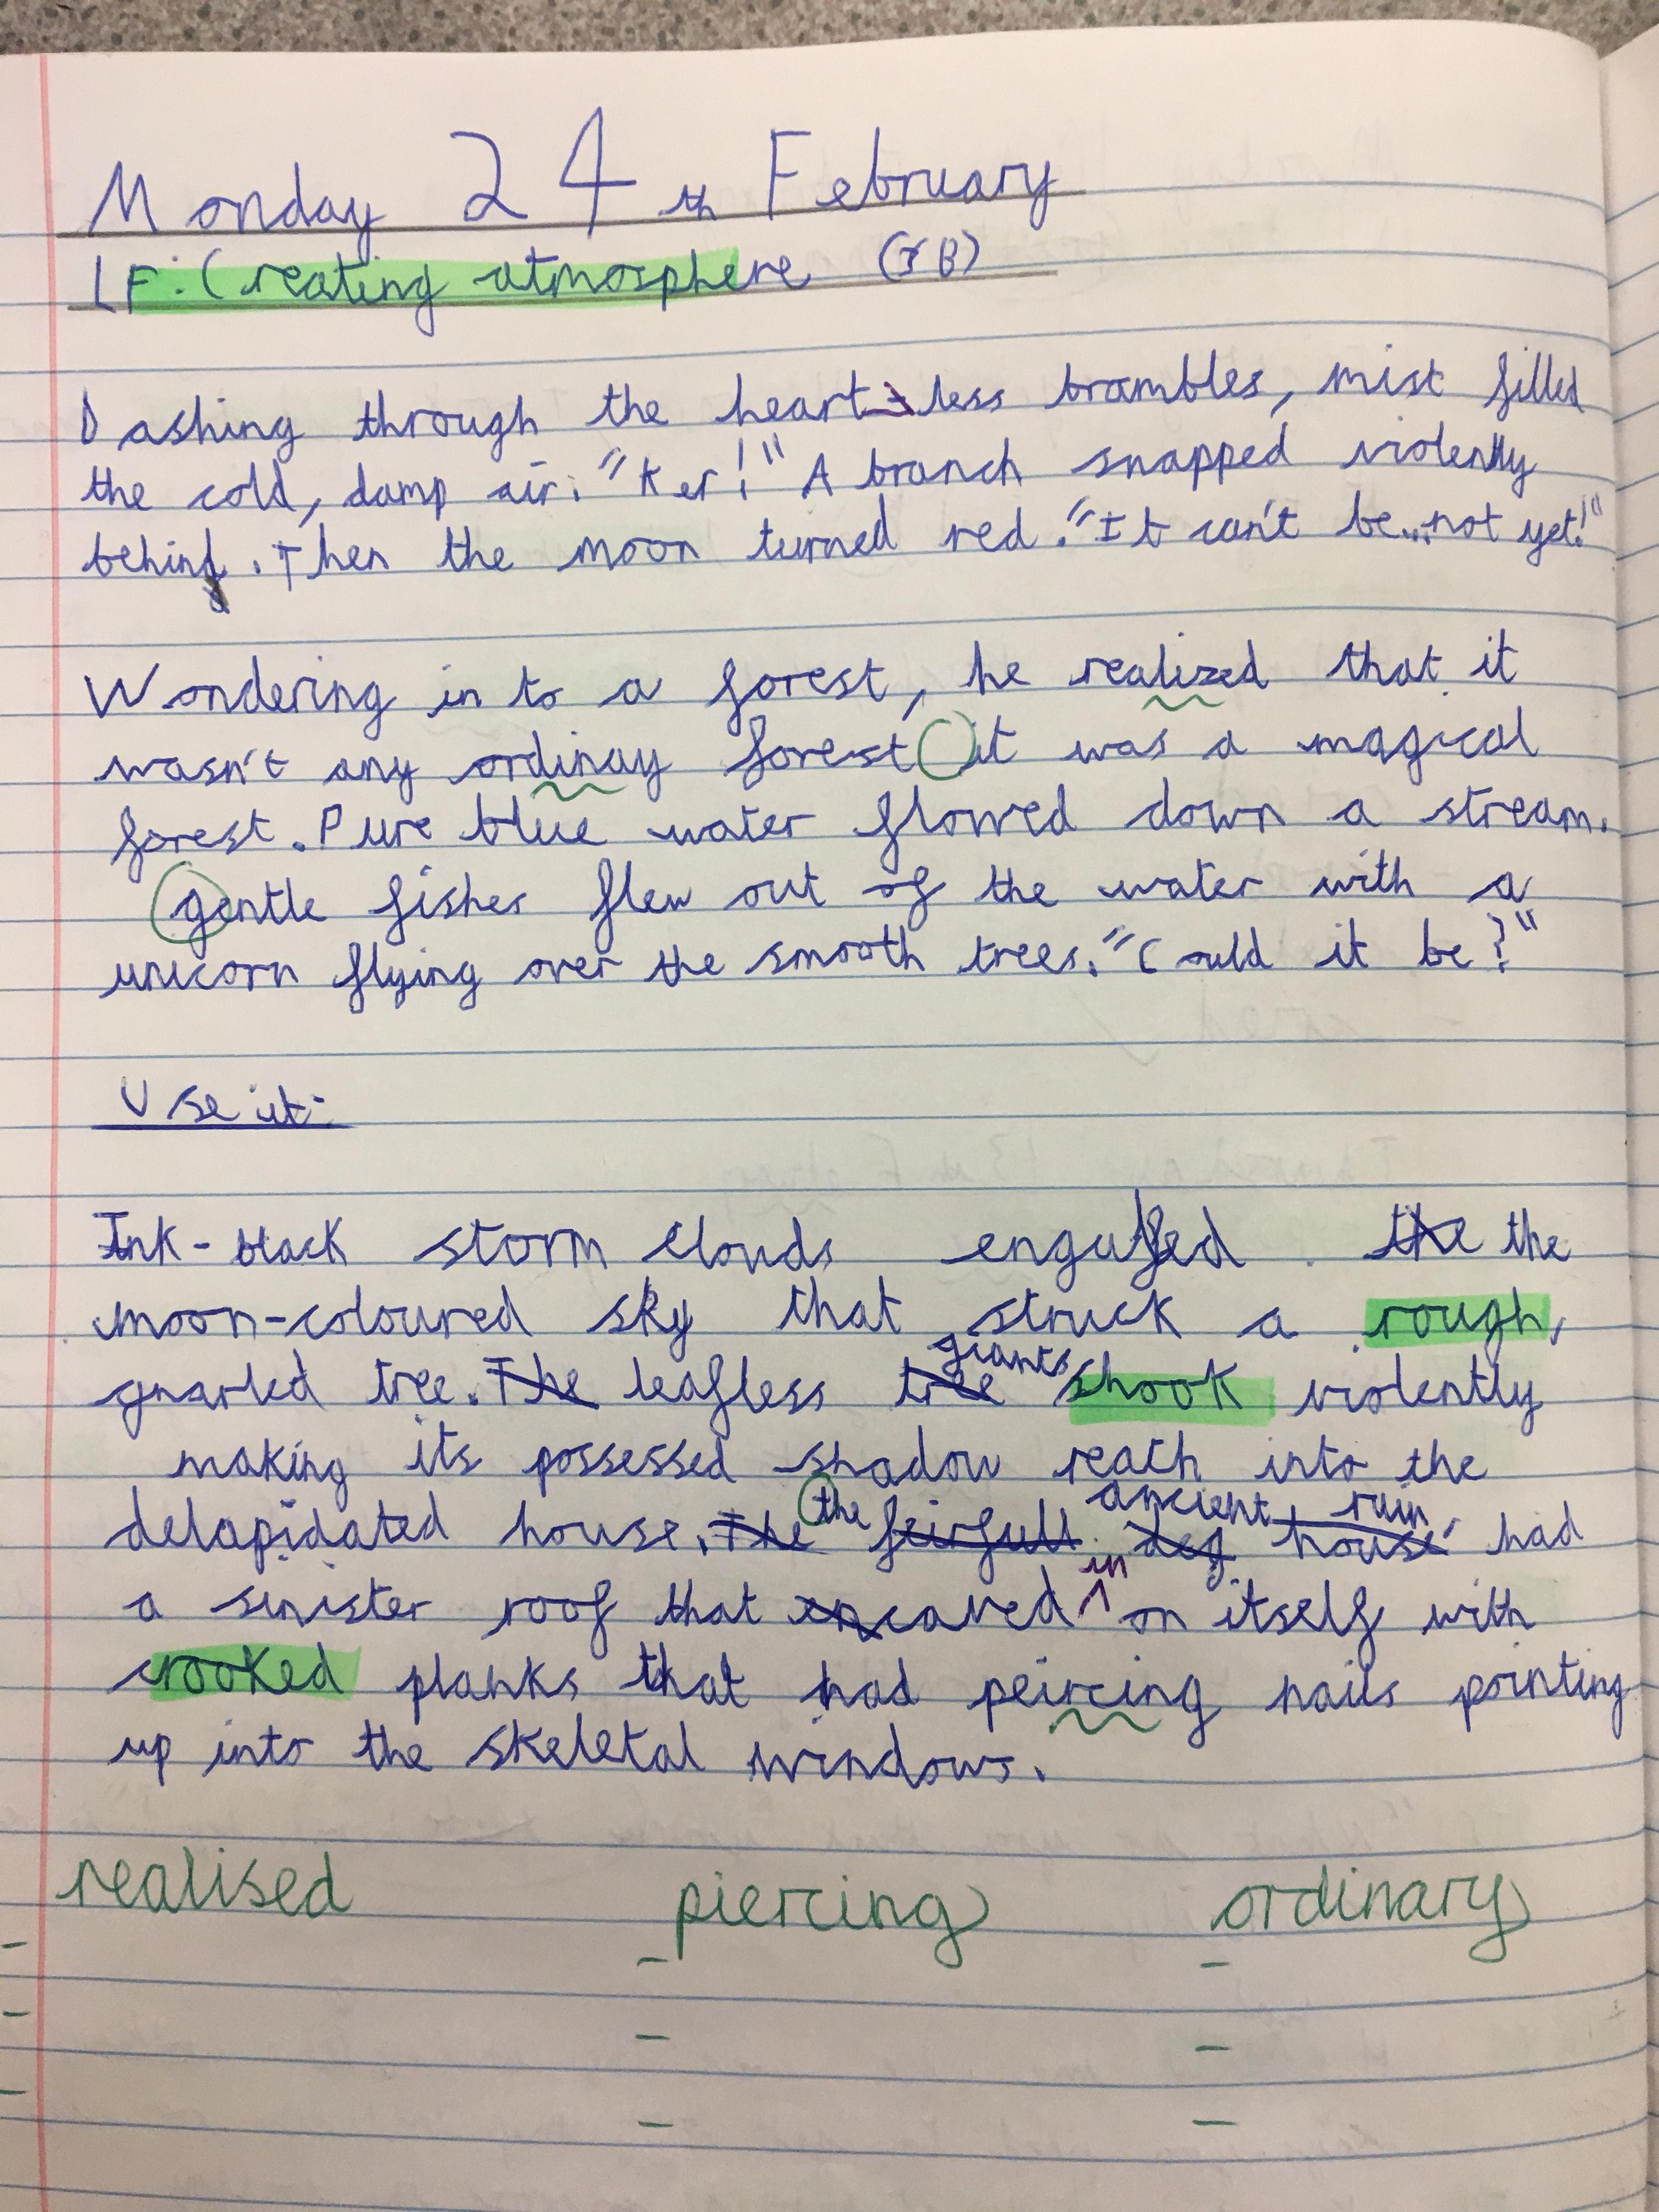 Monday 24th February
LF: Creating atmosphere (GB)
Dashing through the heartless brambles, mist filled
the cold, damp air. "Ker!" A branch snapped violently
behind. Then the moon turned red. "It can't be...not yet!"
Wondering in to a forest, he realized that it
wasn't any ordinay forest it was a magical
forest. Pure blue water flowed down a stream.
gentle fishes flew out of the water with a
unicorn flying over the smooth trees. "Could it be?"
Use it:
Ink-black storm clouds engulfed the the
moon-coloured sky that struck a rough,
giants
gnarled tree. The leafless tree shook violently
making its possessed shadow reach into the
the ancient ruin
delapidated house. The feirfull house had
in
a sinister roof that caved on itself with
crooked planks that had peircing nails pointing
up into the skeletal windows.
realised piercing ordinary